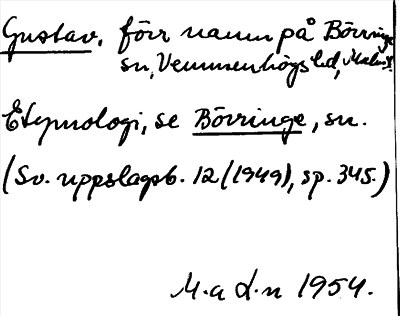 Gustav, förr namn på Börringe
sn, Vemmenhögs hd, Malm.
Etymologi, se Börringe, sn.
(Sv. uppslagsb. 12 (1949), sp. 345.)
M.a d.n 1954.